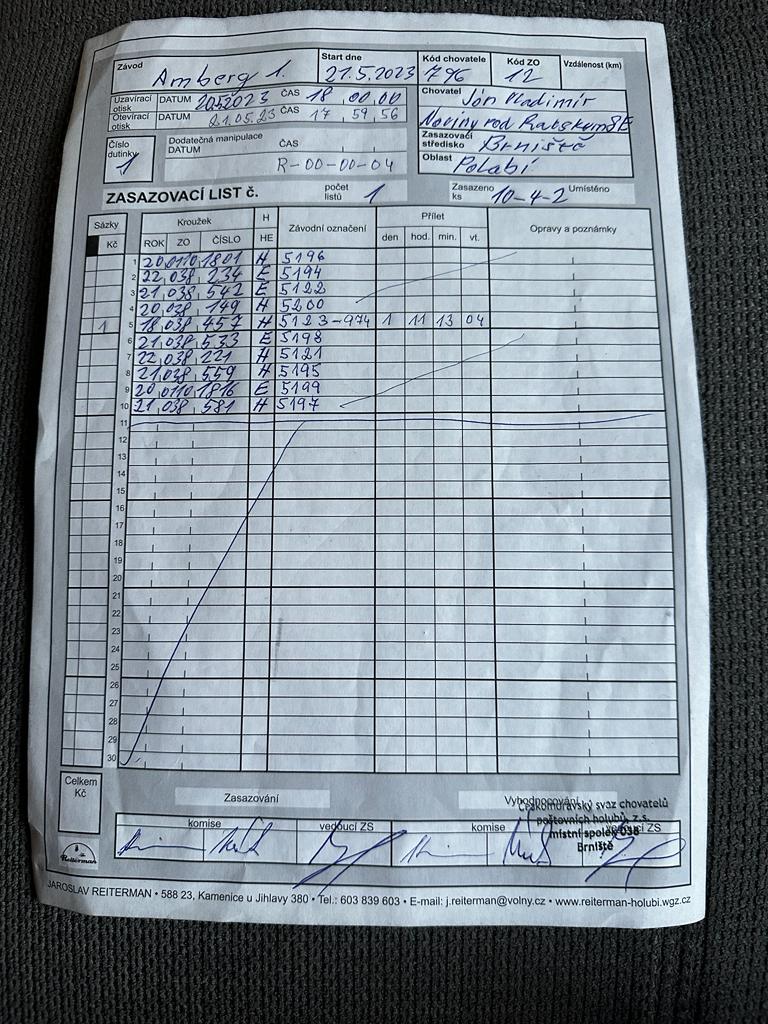 Závod Amberg 1. Start dne 21.5.2023 Kód chovatele 796 Kód ZO 12 Vzdálenost (km)
Uzavírací otisk DATUM 20.5.2023 ČAS 18 00,00
Otevírací otisk DATUM 21.05.23 ČAS 17 59 56
Chovatel Jón Vladimír
Noviny pod Ralskem
Číslo dutinky 1
Dodatečná manipulace DATUM ČAS
R-00-00-04
Zasazovací středisko Brniště
Oblast Polabí
ZASAZOVACÍ LIST č. počet listů 1 Zasazeno ks 10-4-2 Umístěno
Sázky Kroužek H Závodní označení Přílet Opravy a poznámky
Kč ROK ZO ČÍSLO HE den hod. min. vt.
1 20 0110 1801 H 5196
2 22 038 234 E 5194
3 21 038 542 E 5122
4 20 038 149 H 5200
1 5 18 038 457 H 5123-974 1 11 13 04
6 21 038 533 E 5198
7 22 038 221 H 5121
8 21 038 559 H 5195
9 20 0110 1816 E 5199
10 21 038 581 H 5197
11
12
13
14
15
16
17
18
19
20
21
22
23
24
25
26
27
28
29
30
Celkem Kč
Zasazování Vyhodnocování
Českomoravský svaz chovatelů
poštovních holubů, z.s.
místní spolek 038
Brniště
komise vedoucí ZS komise vedoucí ZS
Reiterman
JAROSLAV REITERMAN • 588 23, Kamenice u Jihlavy 380 • Tel.: 603 839 603 • E-mail: j.reiterman@volny.cz • www.reiterman-holubi.wgz.cz